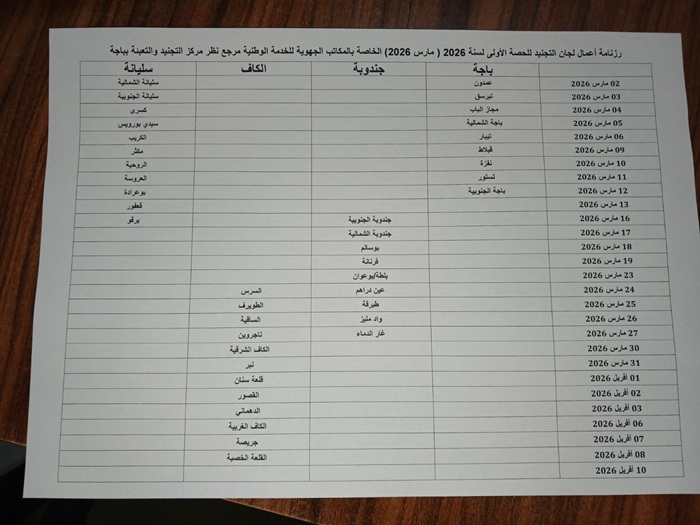 رزنامة أعمال لجان التجنيد للحصة الأولى لسنة 2026 ( مارس 2026) الخاصة بالمكاتب الجهوية للخدمة الوطنية مرجع نظر مركز التجنيد والتعبئة بباجة
باجة جندوبة الكاف سليانة
02 مارس 2026 عمدون سليانة الشمالية
03 مارس 2026 تبرسق سليانة الجنوبية
04 مارس 2026 مجاز الباب كسرى
05 مارس 2026 باجة الشمالية سيدي بورويس
06 مارس 2026 تيبار الكريب
09 مارس 2026 قبلاط مكثر
10 مارس 2026 نفزة الروحية
11 مارس 2026 تستور العروسة
12 مارس 2026 باجة الجنوبية بوعرادة
13 مارس 2026 قعفور
16 مارس 2026 جندوبة الجنوبية برقو
17 مارس 2026 جندوبة الشمالية
18 مارس 2026 بوسالم
19 مارس 2026 فرنانة
23 مارس 2026 بلطة/بوعوان
24 مارس 2026 عين دراهم السرس
25 مارس 2026 طبرقة الطويرف
26 مارس 2026 واد مليز الساقية
27 مارس 2026 غار الدماء تاجروين
30 مارس 2026 الكاف الشرقية
31 مارس 2026 نبر
01 أفريل 2026 قلعة سنان
02 أفريل 2026 القصور
03 أفريل 2026 الدهماني
06 أفريل 2026 الكاف الغربية
07 أفريل 2026 جريصة
08 أفريل 2026 القلعة الخصبة
10 أفريل 2026